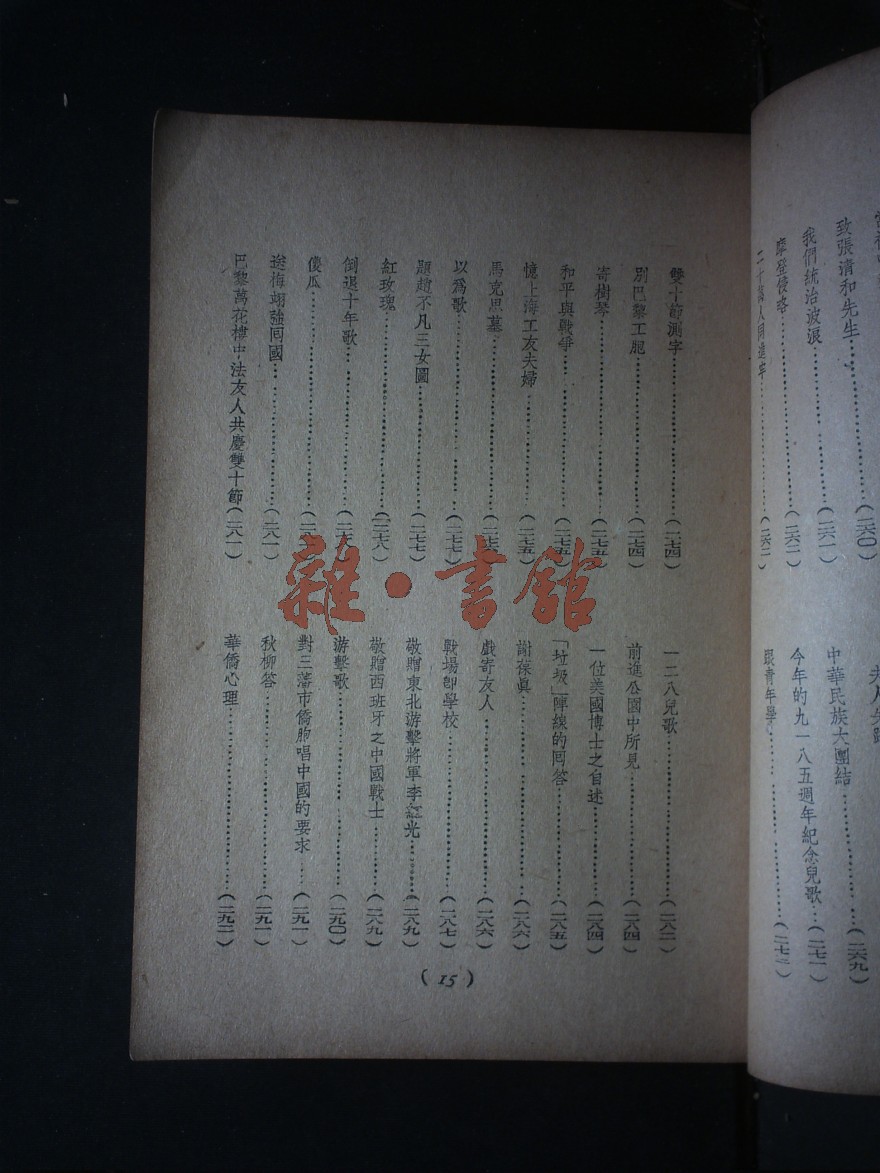 致張清和先生……(二六〇)
我們統治波浪……(二六一)
摩登侵略……(二六二)
二十萬人同進牢……(二六二)
中華民族大團結……(二六九)
今年的九一八五週年紀念兒歌……(二七一)
跟青年學
雙十節測字……(二七四)
別巴黎工胞……(二七四)
寄樹琴……(二七五)
和平與戰爭……(二七五)
憶上海工友夫婦……(二七五)
馬克思墓……(二七六)
以爲歌……(二七七)
題趙不凡三女圖……(二七七)
紅玫瑰……(二七八)
倒退十年歌……(二七八)
傻瓜
送梅翊強囘國……(二八一)
巴黎萬花樓中法友人共慶雙十節(二八一)
一二八兒歌……(二八二)
前進公園中所見……(二八四)
一位美國博士之自述……(二八四)
「垃圾」陣線的囘答……(二八五)
謝葆眞……(二八六)
戲寄友人……(二八六)
戰場卽學校……(二八七)
敬贈東北游擊將軍李紅光……(二八九)
敬贈西班牙之中國戰士……(二八九)
游擊歌……(二九〇)
對三藩市僑胞唱中國的要求……(二九一)
秋柳答……(二九一)
華僑心理……(二九二)
(15)
雜·書館